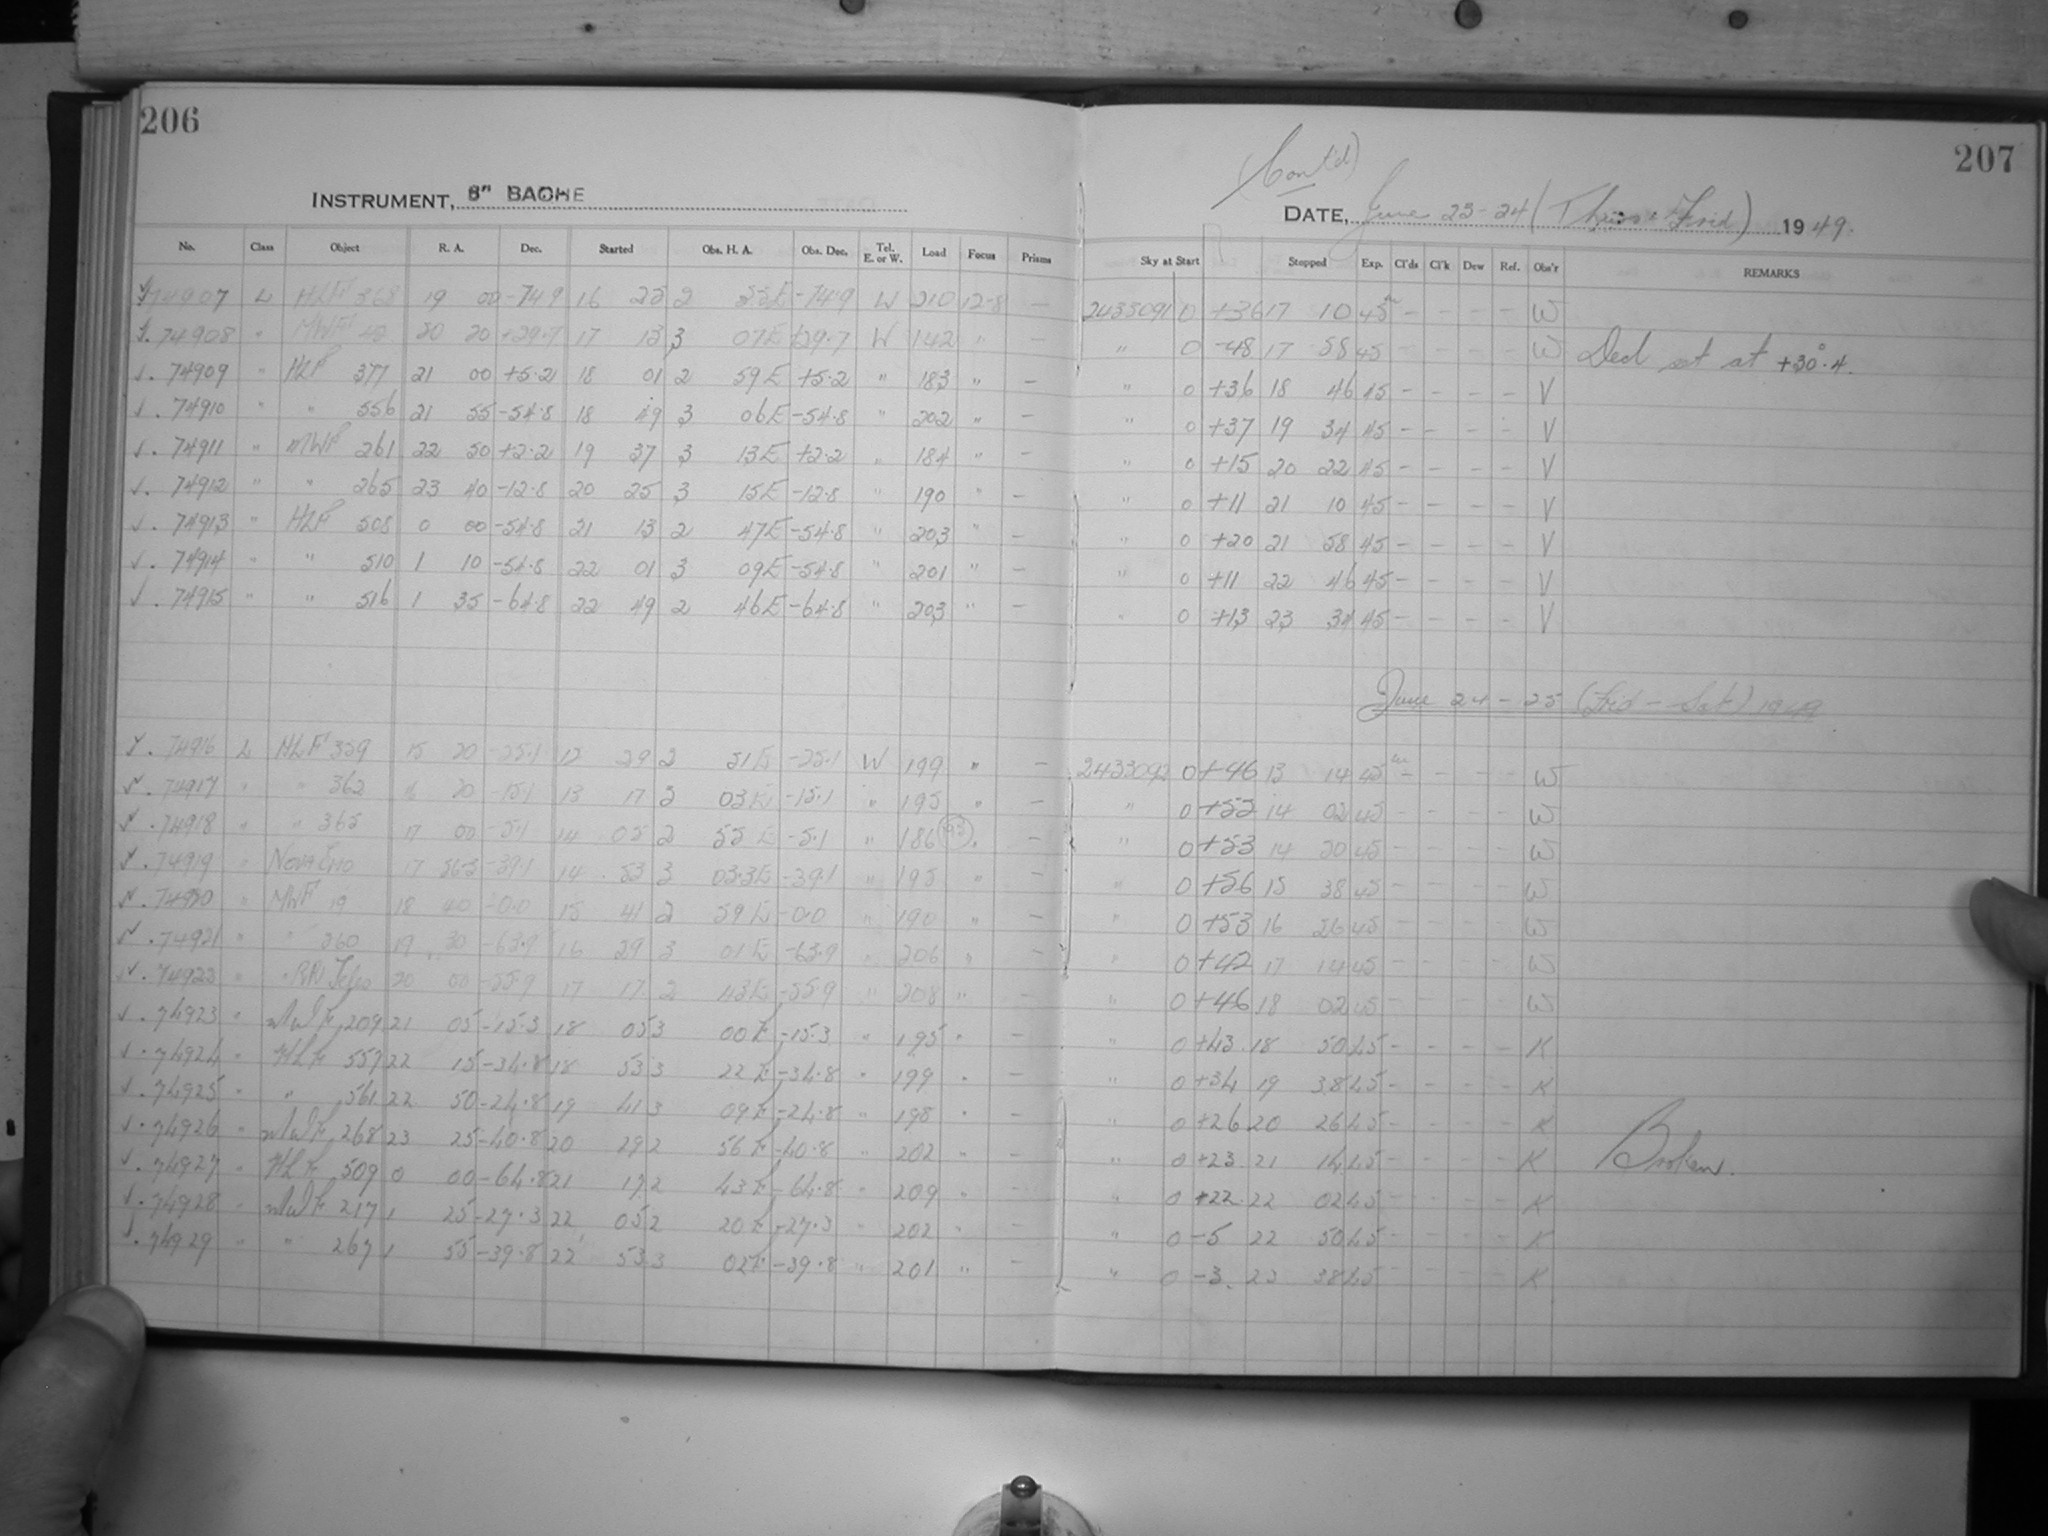 206
207
(Cont'd)
INSTRUMENT, 8" BACHE
DATE, June 23-24 (Thurs - Frid) 1949.
No. Class Object R. A. Dec. Started Obs. H. A. Obs. Dec. Tel. E. or W. Load Focus Prisms Sky at Start Stopped Exp. Cl'ds Cl'k Dew Ref. Obs'r REMARKS
74907 L HLF 368 19 00 -74.9 16 25 2 -74.9 W 210 12.8 — 2433091 0 +36 17 10 45m - - - - W
√. 74908 " MWF 20 20 +29.7 17 13 3 07E +29.7 W 142 " — " 0 -48 17 58 45 - - - - W Decl set at +30°.4.
√. 74909 " HLF 377 21 00 +5.2 18 01 2 59E +5.2 " 183 " — " 0 +36 18 46 45 - - - - V
√. 74910 " " 556 21 55 -54.8 18 49 3 06E -54.8 " 202 " — " 0 +37 19 34 45 - - - - V
√. 74911 " MWF 261 22 50 +2.2 19 37 3 13E +2.2 " 184 " — " 0 +15 20 22 45 - - - - V
√. 74912 " " 265 23 40 -12.8 20 25 3 15E -12.8 " 190 " — " 0 +11 21 10 45 - - - - V
√. 74913 " HLF 508 0 00 -54.8 21 13 2 47E -54.8 " 203 " — " 0 +20 21 58 45 - - - - V
√. 74914 " " 510 1 10 -54.8 22 01 3 09E -54.8 " 201 " — " 0 +11 22 46 45 - - - - V
√. 74915 " " 516 1 35 -64.8 22 49 2 46E -64.8 " 203 " — " 0 +13 23 34 45 - - - - V
June 24 - 25 (Frid - Sat) 1949
√. 74916 L HLF 359 15 20 -25.1 12 29 2 51E -25.1 W 199 " — 2433092 0 +46 13 14 45m - - - - W
√. 74917 " " 362 16 20 -15.1 13 17 3 03E -15.1 " 195 " — " 0 +52 14 02 45 - - - - W
√. 74918 " " 365 17 00 -5.1 14 05 2 55E -5.1 " 186 — " 0 +53 14 50 45 - - - - W
√. 74919 " 17 56.3 -39.1 14 53 3 03.3E -39.1 " 195 " — " 0 +56 15 38 45 - - - - W
√. 74920 " MWF 19 18 40 -0.0 15 41 2 59E -0.0 " 190 " — " 0 +53 16 26 45 - - - - W
√. 74921 " " 360 19 30 -63.9 16 29 3 01E -63.9 " 206 " — " 0 +42 17 14 45 - - - - W
√. 74922 " 20 00 -55.9 17 17 2 43E -55.9 " 208 " — " 0 +46 18 02 45 - - - - W
√. 74923 " MWF 209 21 05 -15.3 18 05 3 00E -15.3 " 195 " — " 0 +43 18 50 45 - - - - K
√. 74924 " HLF 557 22 15 -34.8 18 53 3 22E -34.8 " 199 " — " 0 +34 19 38 45 - - - - K
√. 74925 " " 561 22 50 -24.8 19 41 3 09E -24.8 " 198 " — " 0 +26 20 26 45 - - - - K
√. 74926 " MWF 268 23 25 -40.8 20 29 2 56E -40.8 " 202 " — " 0 +23 21 14 45 - - - - K Broken.
√. 74927 " HLF 509 0 00 -64.8 21 17 2 43E -64.8 " 209 " — " 0 +22 22 02 45 - - - - K
√. 74928 " MWF 217 1 25 -27.3 22 05 2 20E -27.3 " 202 " — " 0 -5 22 50 45 - - - - K
√. 74929 " " 267 1 55 -39.8 22 53 3 02E -39.8 " 201 " — " 0 -3 23 38 45 - - - - K